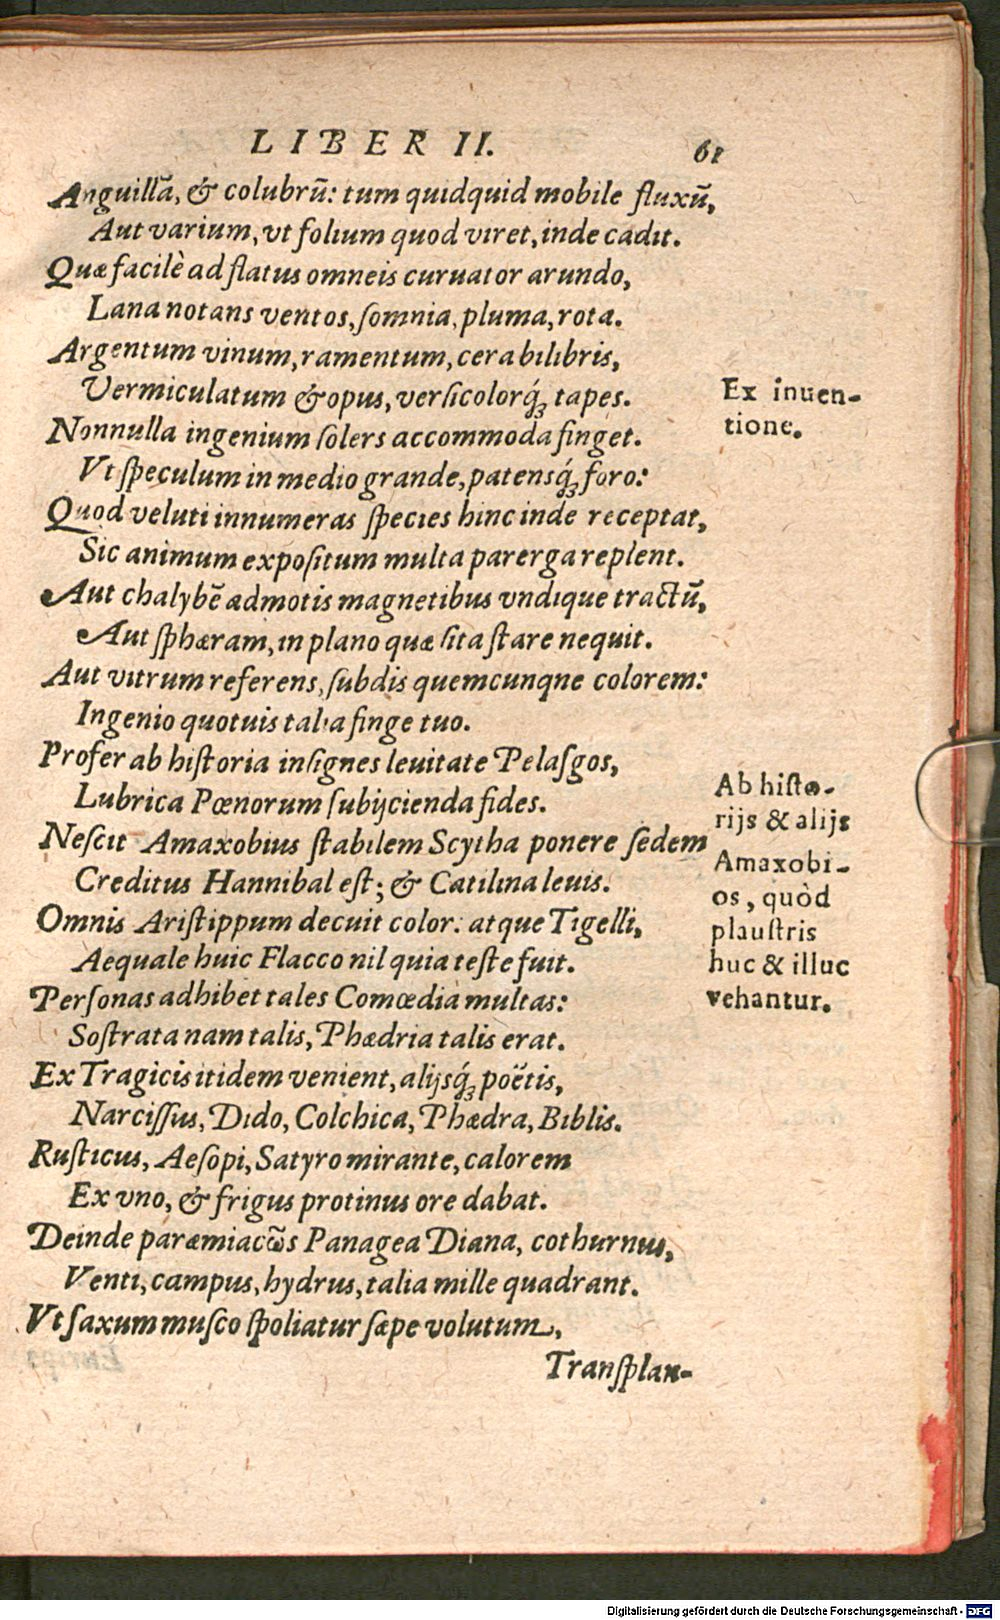 LIBER II. 61
Anguillā, & colubrū: tum quidquid mobile fluxū,
Aut varium, vt folium quod viret, inde cadit.
Quæ facilè ad flatus omneis curuator arundo,
Lana notans ventos, ſomnia, pluma, rota.
Argentum vinum, ramentum, cera bilibris,
Vermiculatum & opus, verſicolorq́; tapes.
Ex inuen-
tione.
Nonnulla ingenium ſolers accommoda finget.
Vt ſpeculum in medio grande, patensq́; foro:
Quod veluti innumeras ſpecies hinc inde receptat,
Sic animum expoſitum multa parerga replent.
Aut chalybē admotis magnetibus vndique tractū,
Aut ſphæram, in plano quæ ſita ſtare nequit.
Aut vitrum referens, ſubdis quemcunqne colorem:
Ingenio quotuis talia finge tuo.
Profer ab hiſtoria inſignes leuitate Pelaſgos,
Lubrica Pœnorum ſubijcienda fides.
Ab hiſto-
rijs & alijs
Neſcit Amaxobius ſtabilem Scytha ponere ſedem
Creditus Hannibal eſt; & Catilina leuis.
Amaxobi-
os, quòd
plauſtris
huc & illuc
vehantur.
Omnis Ariſtippum decuit color: atque Tigelli,
Aequale huic Flacco nil quia teſte fuit.
Perſonas adhibet tales Comœdia multas:
Soſtrata nam talis, Phædria talis erat.
Ex Tragicis itidem venient, alijsq́; poëtis,
Narciſſus, Dido, Colchica, Phædra, Biblis.
Ruſticus, Aeſopi, Satyro mirante, calorem
Ex vno, & frigus protinus ore dabat.
Deinde paræmiacῶs Panagea Diana, cothurnus,
Venti, campus, hydrus, talia mille quadrant.
Vt ſaxum muſco ſpoliatur ſæpe volutum,
Tranſplan-
Digitalisierung gefördert durch die Deutsche Forschungsgemeinschaft - DFG